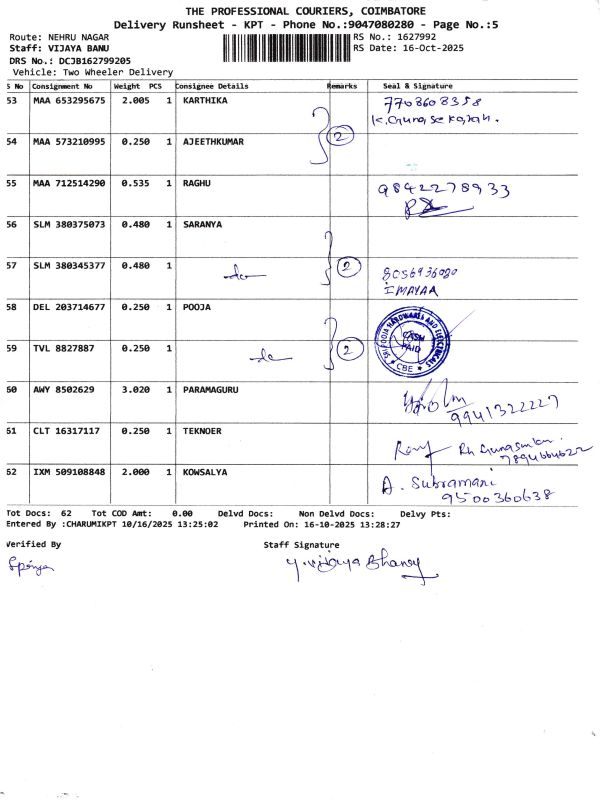 THE PROFESSIONAL COURIERS, COIMBATORE
Delivery Runsheet - KPT - Phone No.:9047080280 - Page No.:5
Route: NEHRU NAGAR RS No.: 1627992
Staff: VIJAYA BANU RS Date: 16-Oct-2025
DRS No.: DCJB162799205
Vehicle: Two Wheeler Delivery
S No Consignment No Weight PCS Consignee Details Remarks Seal & Signature
53 MAA 653295675 2.005 1 KARTHIKA 7708608358
K. Gunasekaran.
2
54 MAA 573210995 0.250 1 AJEETHKUMAR
55 MAA 712514290 0.535 1 RAGHU 9842278933
56 SLM 380375073 0.480 1 SARANYA
57 SLM 380345377 0.480 1 do 2 8056936080
IMAYAA
58 DEL 203714677 0.250 1 POOJA
SRI POOJA HARDWARES AND ELECTRICALS
CASH
PAID
CBE
59 TVL 8827887 0.250 1 do 2
60 AWY 8502629 3.020 1 PARAMAGURU
9941322227
61 CLT 16317117 0.250 1 TEKNOER
62 IXM 509108848 2.000 1 KOWSALYA A. Subramani
9500360638
Tot Docs: 62 Tot COD Amt: 0.00 Delvd Docs: Non Delvd Docs: Delvy Pts:
Entered By :CHARUMIKPT 10/16/2025 13:25:02 Printed On: 16-10-2025 13:28:27
Verified By Staff Signature
Y. Vijaya Bhanu